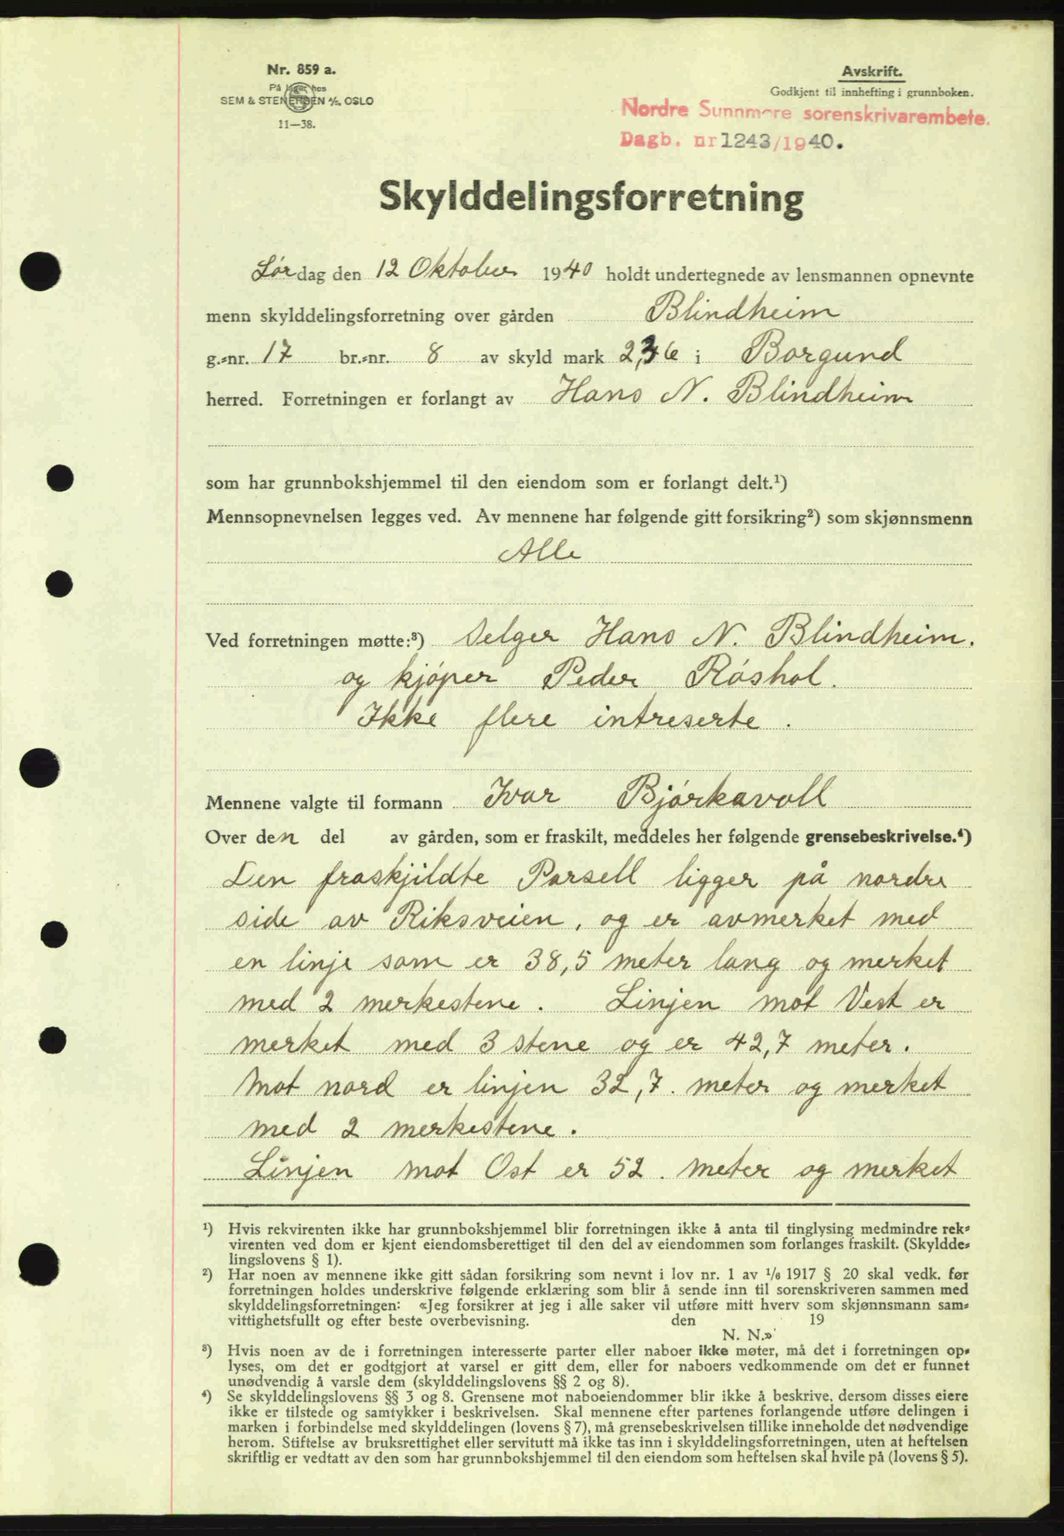 Nr. 859 a.
På lager hos
SEM & STENERSEN A/S. OSLO
11—38.
Avskrift.
Godkjent til innhefting i grunnboken.
Nordre Sunnmøre sorenskrivarembete.
Dagb. nr 1243/1940.
Skylddelingsforretning
Lørdag den 12 Oktober 1940 holdt undertegnede av lensmannen opnevnte
menn skylddelingsforretning over gården Blindheim
g.-nr. 17 br.-nr. 8 av skyld mark 2,36 i Borgund
herred. Forretningen er forlangt av Hans N. Blindheim
som har grunnbokshjemmel til den eiendom som er forlangt delt.¹)
Mennsopnevnelsen legges ved. Av mennene har følgende gitt forsikring²) som skjønnsmenn
Alle
Ved forretningen møtte:³) Selger Hans N. Blindheim.
og kjøper Peder Røshol.
Ikke flere intreserte.
Mennene valgte til formann Ivar Bjørkavoll
Over den del av gården, som er fraskilt, meddeles her følgende grensebeskrivelse.⁴)
Den fraskjildte Parsell ligger på nordre
side av Riksveien, og er avmerket med
en linje som er 38,5 meter lang og merket
med 2 merkestene. Linjen mot Vest er
merket med 3 stene og er 42,7 meter.
Mot nord er linjen 32,7. meter og merket
med 2 merkestene.
Linjen mot Ost er 52. meter og merket
¹) Hvis rekvirenten ikke har grunnbokshjemmel blir forretningen ikke å anta til tinglysing medmindre rek-
virenten ved dom er kjent eiendomsberettiget til den del av eiendommen som forlanges fraskilt. (Skyldde-
lingslovens § 1).
²) Har noen av mennene ikke gitt sådan forsikring som nevnt i lov nr. 1 av 1/6 1917 § 20 skal vedk. før
forretningen holdes underskrive følgende erklæring som blir å sende inn til sorenskriveren sammen med
skylddelingsforretningen: «Jeg forsikrer at jeg i alle saker vil utføre mitt hverv som skjønnsmann sam-
vittighetsfullt og efter beste overbevisning. den 19
N. N.»
³) Hvis noen av de i forretningen interesserte parter eller naboer ikke møter, må det i forretningen op-
lyses, om det er godtgjort at varsel er gitt dem, eller for naboers vedkommende om det er funnet
unødvendig å varsle dem (skylddelingslovens §§ 2 og 8).
⁴) Se skylddelingslovens §§ 3 og 8. Grensene mot naboeiendommer blir ikke å beskrive, dersom disses eiere
ikke er tilstede og samtykker i beskrivelsen. Skal mennene efter partenes forlangende utføre delingen i
marken i forbindelse med skylddelingen (lovens § 7), må grensebeskrivelsen tillike inneholde det nødvendige
herom. Stiftelse av bruksrettighet eller servitutt må ikke tas inn i skylddelingsforretningen, uten at heftelsen
skriftlig er vedtatt av den som har grunnbokshjemmel til den eiendom som heftelsen skal hvile på (lovens § 5).